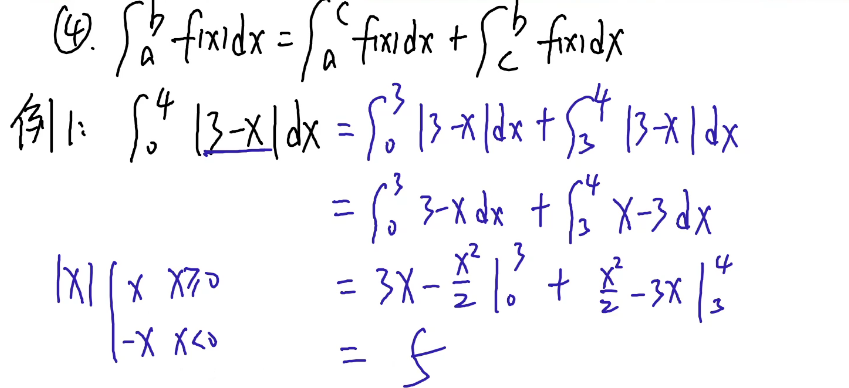 ④. ∫_a^b f(x)dx = ∫_a^c f(x)dx + ∫_c^b f(x)dx
例1: ∫_0^4 |3-x|dx = ∫_0^3 |3-x|dx + ∫_3^4 |3-x|dx
= ∫_0^3 3-x dx + ∫_3^4 x-3 dx
|x| { x x≥0
-x x<0
= 3x - x²/2 |_0^3 + x²/2 - 3x |_3^4
= 5